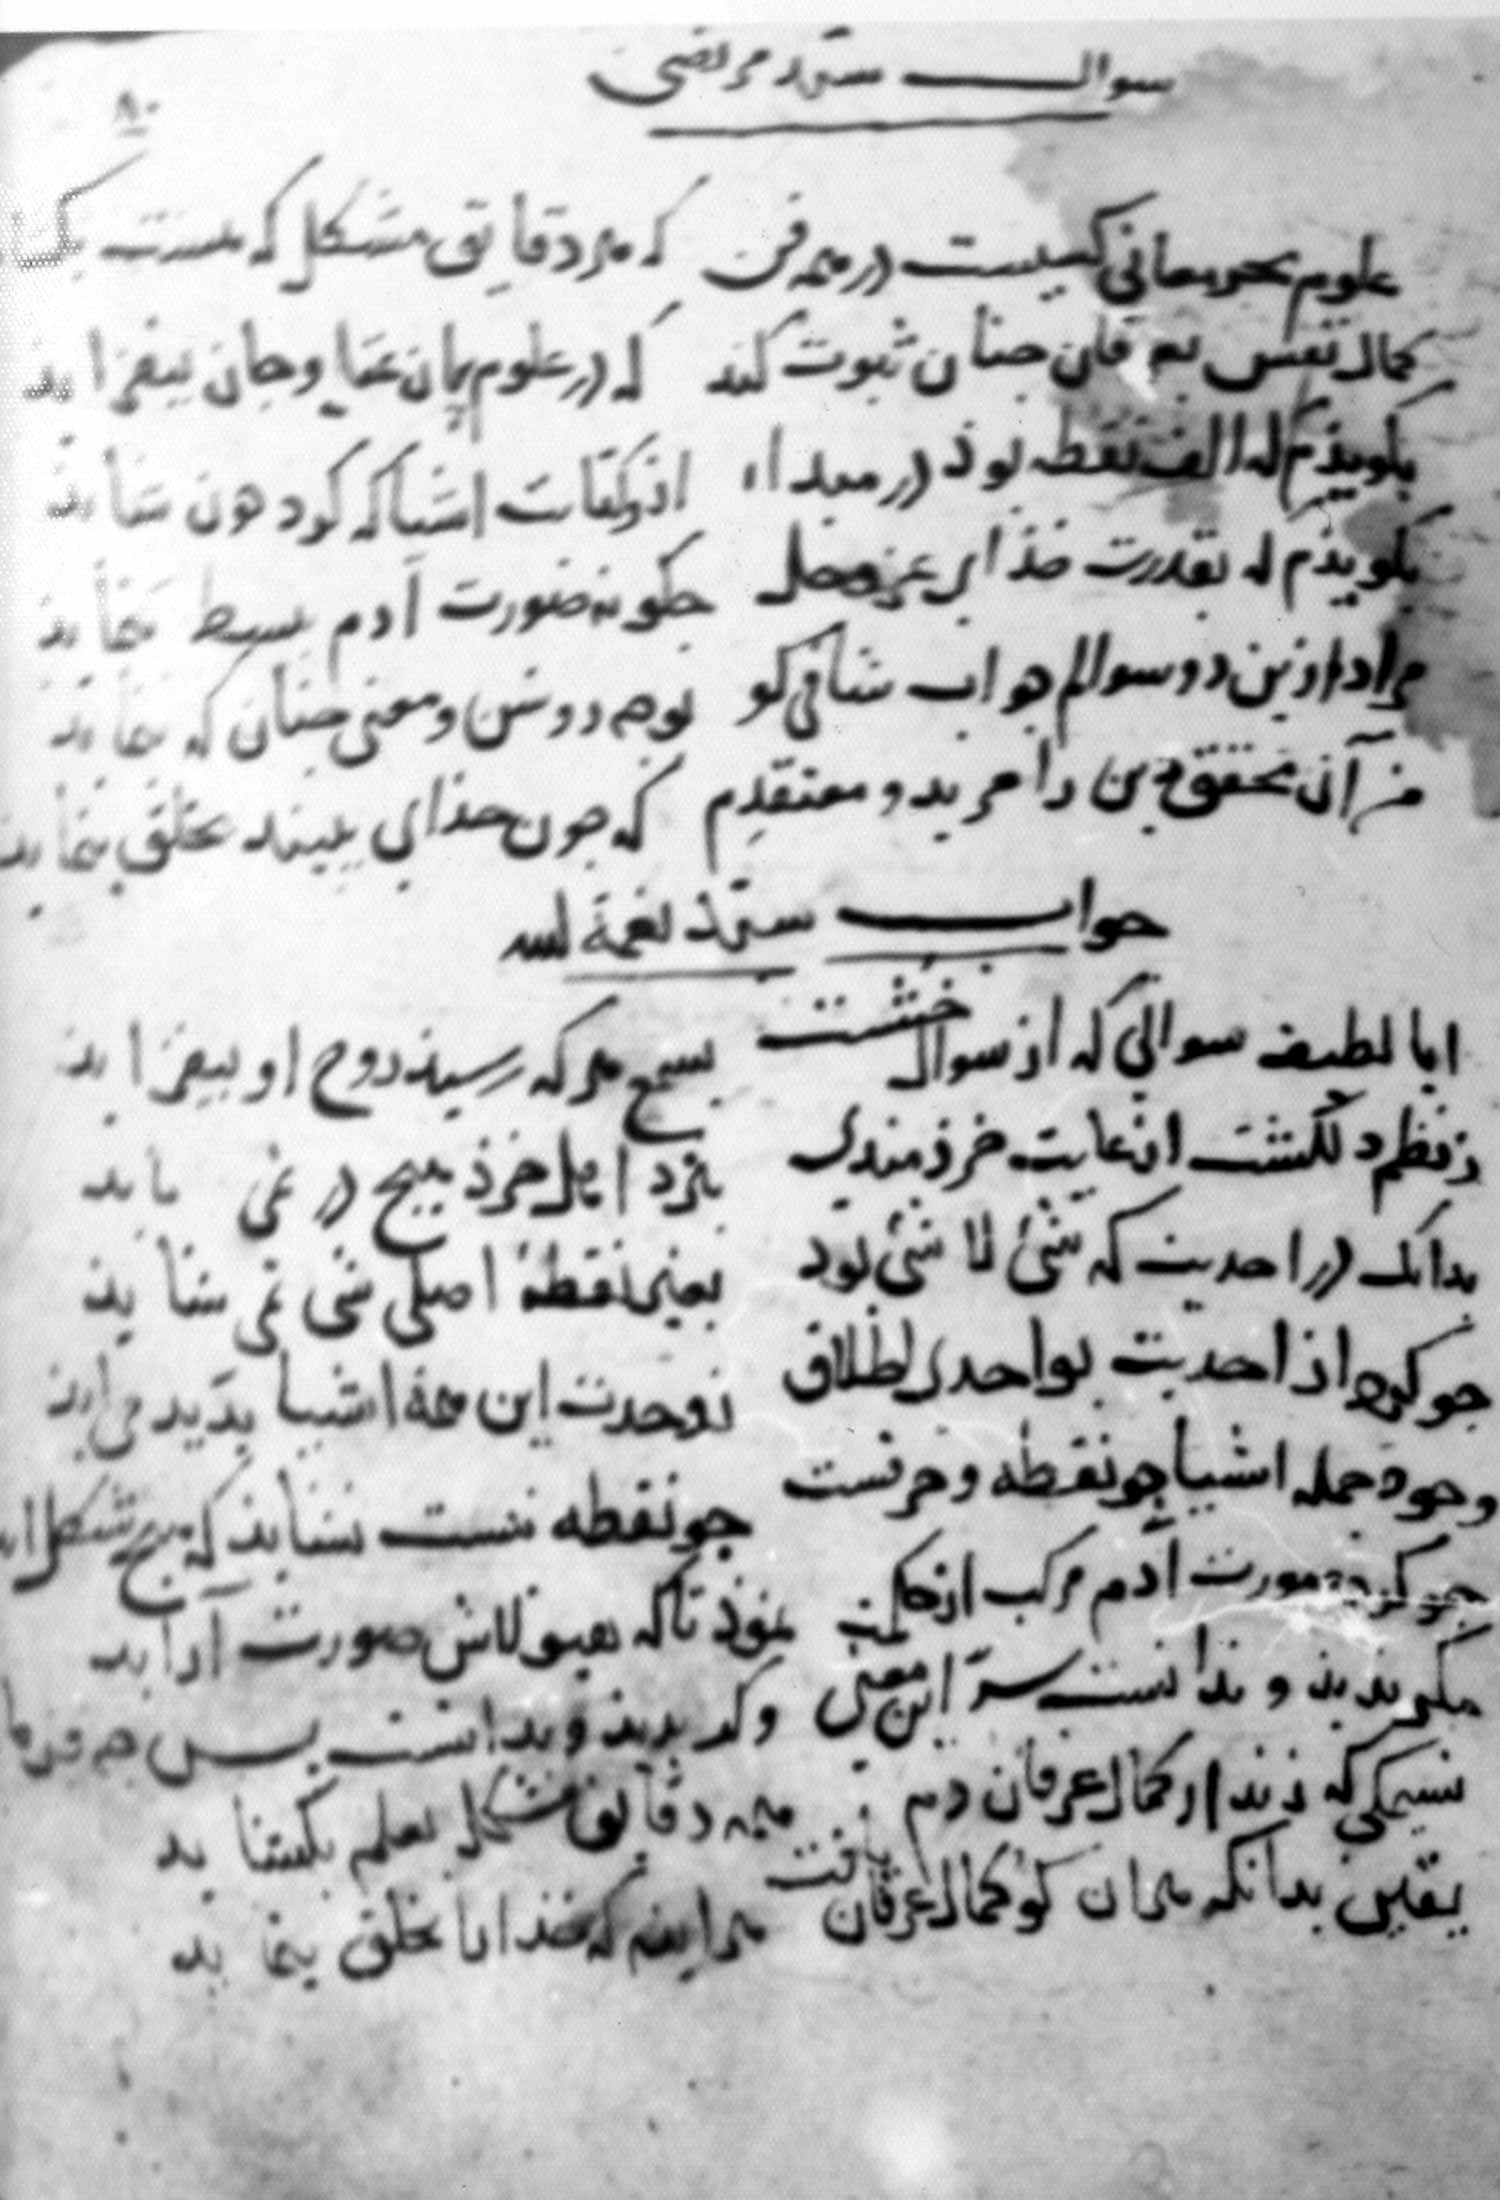 سوال سید مرتضی
۸۰
علوم بحر معانی کیست در همه فن که هر دقایق مشکل که هست
کمال نفس به چنان ثبوت کند که در علوم و جان بیفزاید
بگویذم که الف نقطه بوذ در مبدا از اشیا که کرد هون
بگویذم که بقدرت خذای عز وجل چکونه صورت آدم بسیط نماید
مراد ازین دو سوالم جواب شافی کو بوجه روشن و معنی چنان که نماید
من آن محقق دین را مرید و معتقدم که چون خذای ببیند بخلق بنماید
جواب سید نعمة الله
ایا لطیف سوالی که از سوال خشت بسمع هرکه رسیذ روح او بیفزاید
ز نظم دلکشت ای غایت خرذمندی بنزد اهل خرذ هیچ در نمی یابد
بدانک در احدیت که شئ لا شئ بود بعین نقطهٔ اصلی شی نمی شاید
چو کرد از احدیت بواحدی اطلاق ز وحدت این همه اشیا بدید می آید
وجود جمله اشیا چو نقطه و حرفست چو نقطه نیست نشاید که هیچ شکل
چو کرد صورت آدم مرکب از حکمت نموذ تا که هیولاش صورت آراید
مکر ندید و ندانست سر این معنی و کر بدید و بدانست پس
نسیمکی که زند از کمال عرفان دم همه دقایق مشکل بعلم بکشاید
یقین بدانکه هر آن کو کمال عرفان یافت هر آینه که خذا را بخلق بنماید